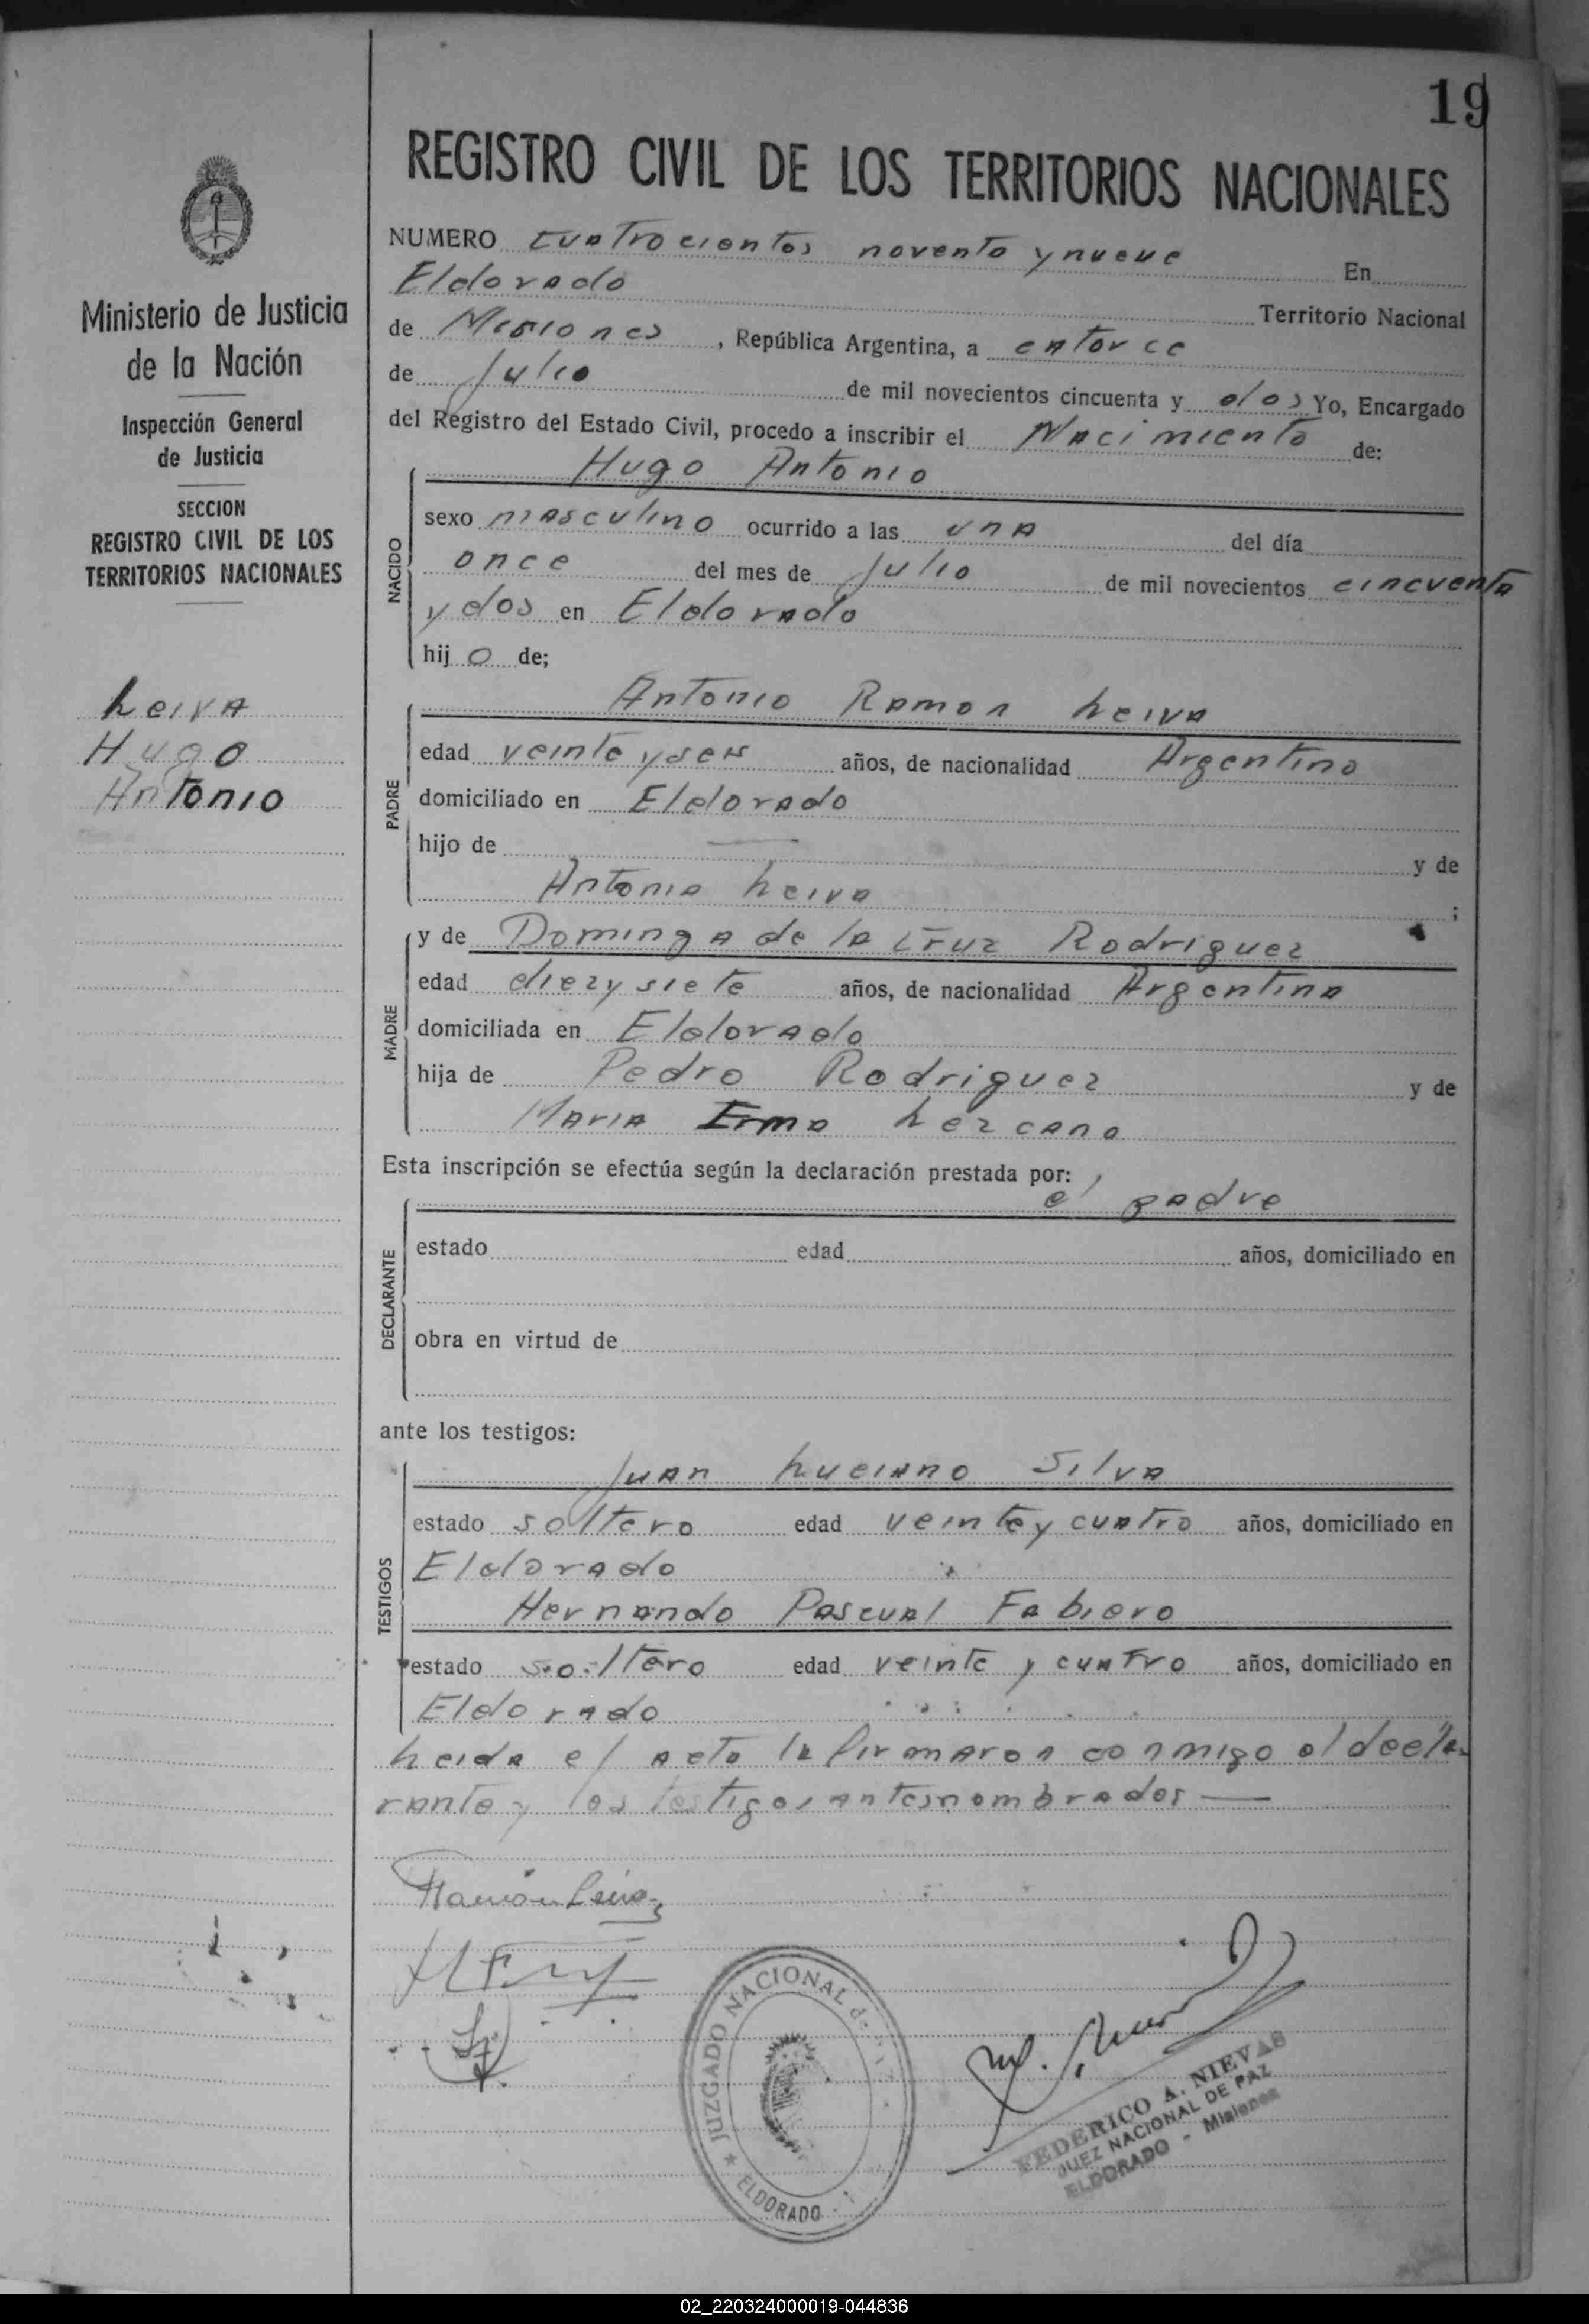 19
REGISTRO CIVIL DE LOS TERRITORIOS NACIONALES
Ministerio de Justicia
de la Nación
Inspección General
de Justicia
SECCION
REGISTRO CIVIL DE LOS
TERRITORIOS NACIONALES
Leiva
Hugo
Antonio
NUMERO cuatrocientos noventa y nueve En
Eldorado Territorio Nacional
de Misiones, República Argentina, a catorce
de Julio de mil novecientos cincuenta y dos Yo, Encargado
del Registro del Estado Civil, procedo a inscribir el Nacimiento de:
NACIDO
Hugo Antonio
sexo masculino ocurrido a las una del día
once del mes de Julio de mil novecientos cincuenta
y dos en Eldorado
hijo de;
PADRE
Antonio Ramon Leiva
edad veinte y seis años, de nacionalidad Argentino
domiciliado en Eldorado
hijo de — y de
Antonia Leiva ;
MADRE
y de Dominga de la Cruz Rodriguez
edad diez y siete años, de nacionalidad Argentina
domiciliada en Eldorado
hija de Pedro Rodriguez y de
Maria Irma Lezcano
Esta inscripción se efectúa según la declaración prestada por:
DECLARANTE
el padre
estado edad años, domiciliado en
obra en virtud de
ante los testigos:
TESTIGOS
Juan Luciano Silva
estado soltero edad veinte y cuatro años, domiciliado en
Eldorado
Hernando Pascual Fabiero
estado soltero edad veinte y cuatro años, domiciliado en
Eldorado
Leida el acta la firmaron conmigo el decla-
rante y los testigos antes nombrados —
Ramón Leiva
JUZGADO NACIONAL de
ELDORADO
FEDERICO A. NIEVAS
JUEZ NACIONAL DE PAZ
ELDORADO - Misiones
02_220324000019-044836